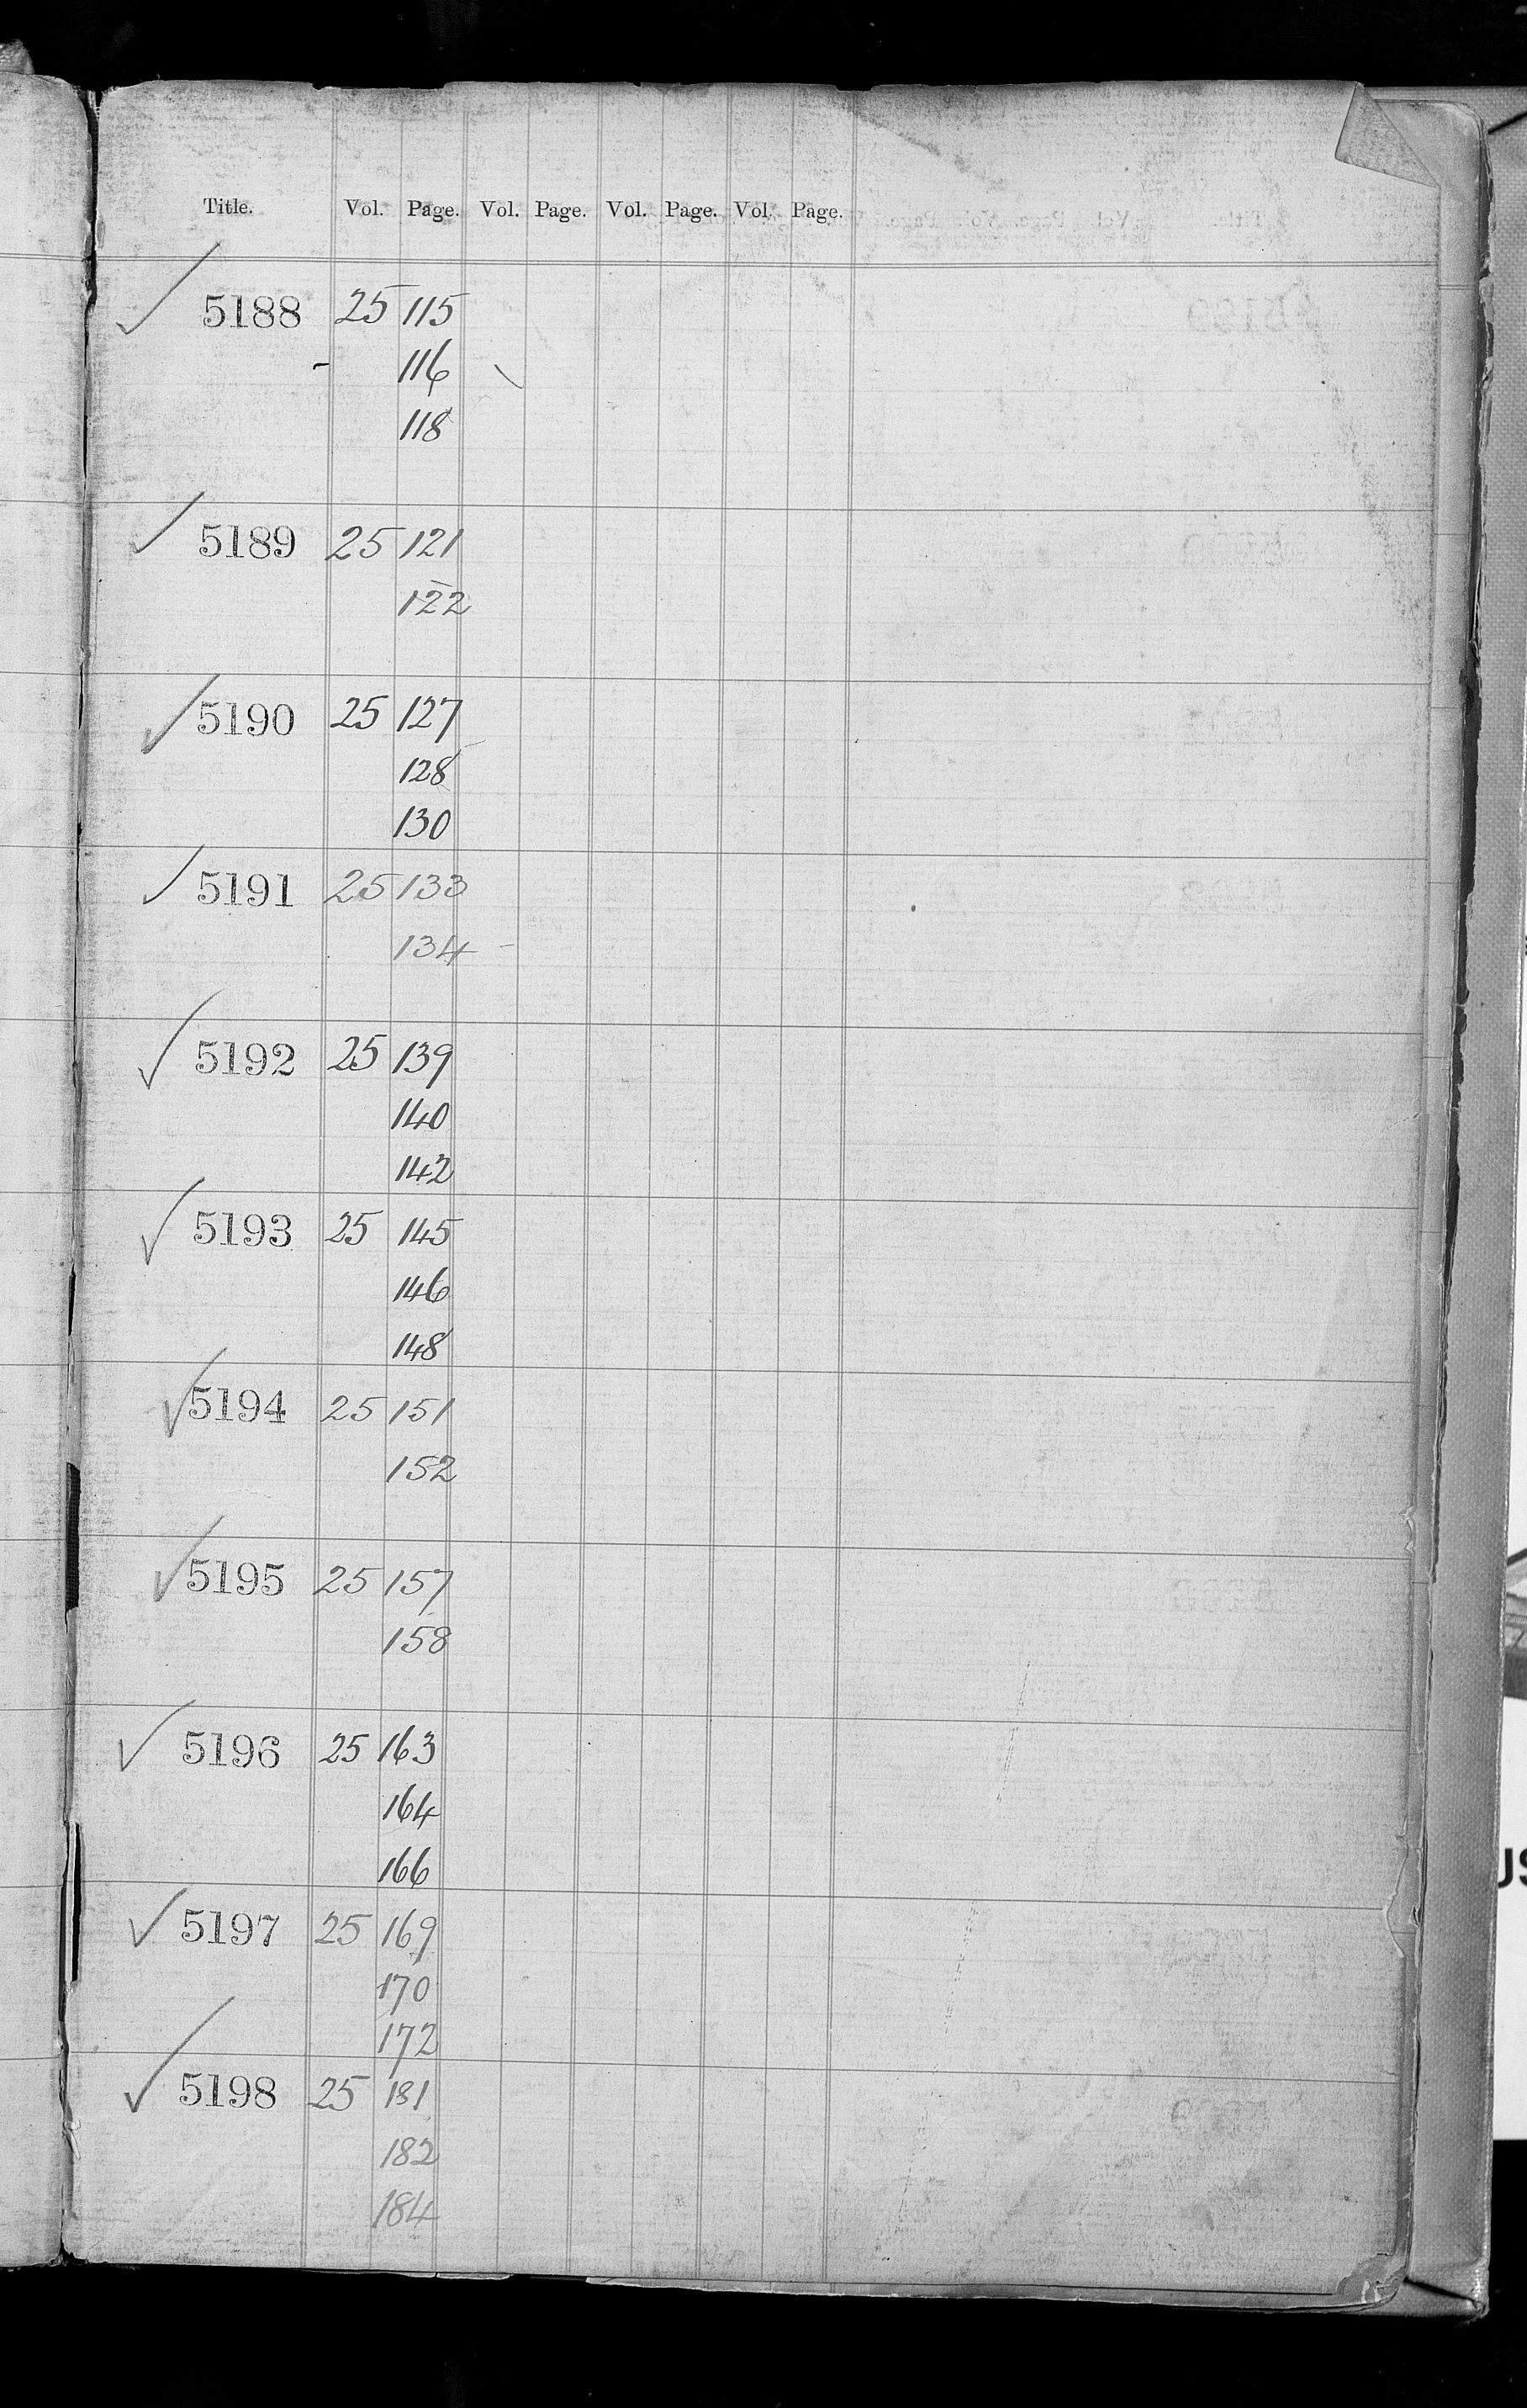 Title. Vol. Page. Vol. Page. Vol. Page. Vol. Page.
✓ 5188 25 115
116
118
✓ 5189 25 121
122
✓ 5190 25 127
128
130
✓ 5191 25 133
134
✓ 5192 25 139
140
142
✓ 5193 25 145
146
148
✓ 5194 25 151
152
✓ 5195 25 157
158
✓ 5196 25 163
164
166
✓ 5197 25 169
170
172
✓ 5198 25 181
182
184